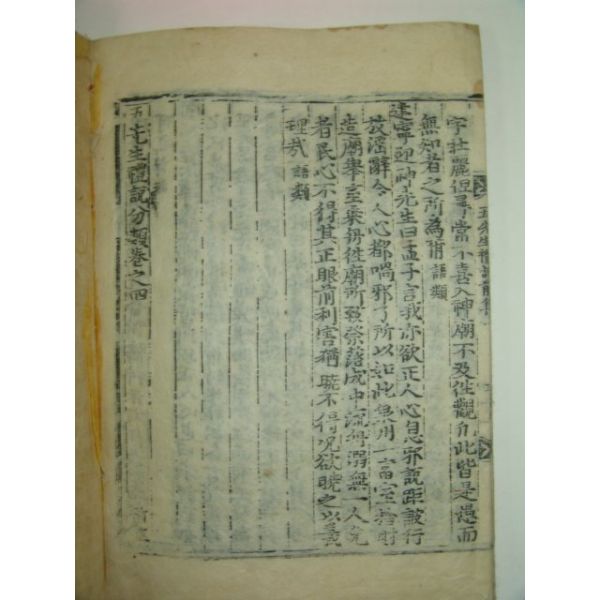 五先生禮說前集
宇壯麗但尋常不喜入神廟不及往觀凡此皆是愚而
無知者之所為甫 語類
靈迎神先生曰孟子言我亦欲正人心息邪說距詖行
放淫辭今人心都喎邪了所以如此泉州一富室捨財
造廟舉室乘舟往廟所致祭落成中流舟溺無一人免
者民心不得其正眼前利害猶曉不得況欲曉之以義
理哉 語類
五先生禮說分類卷之四